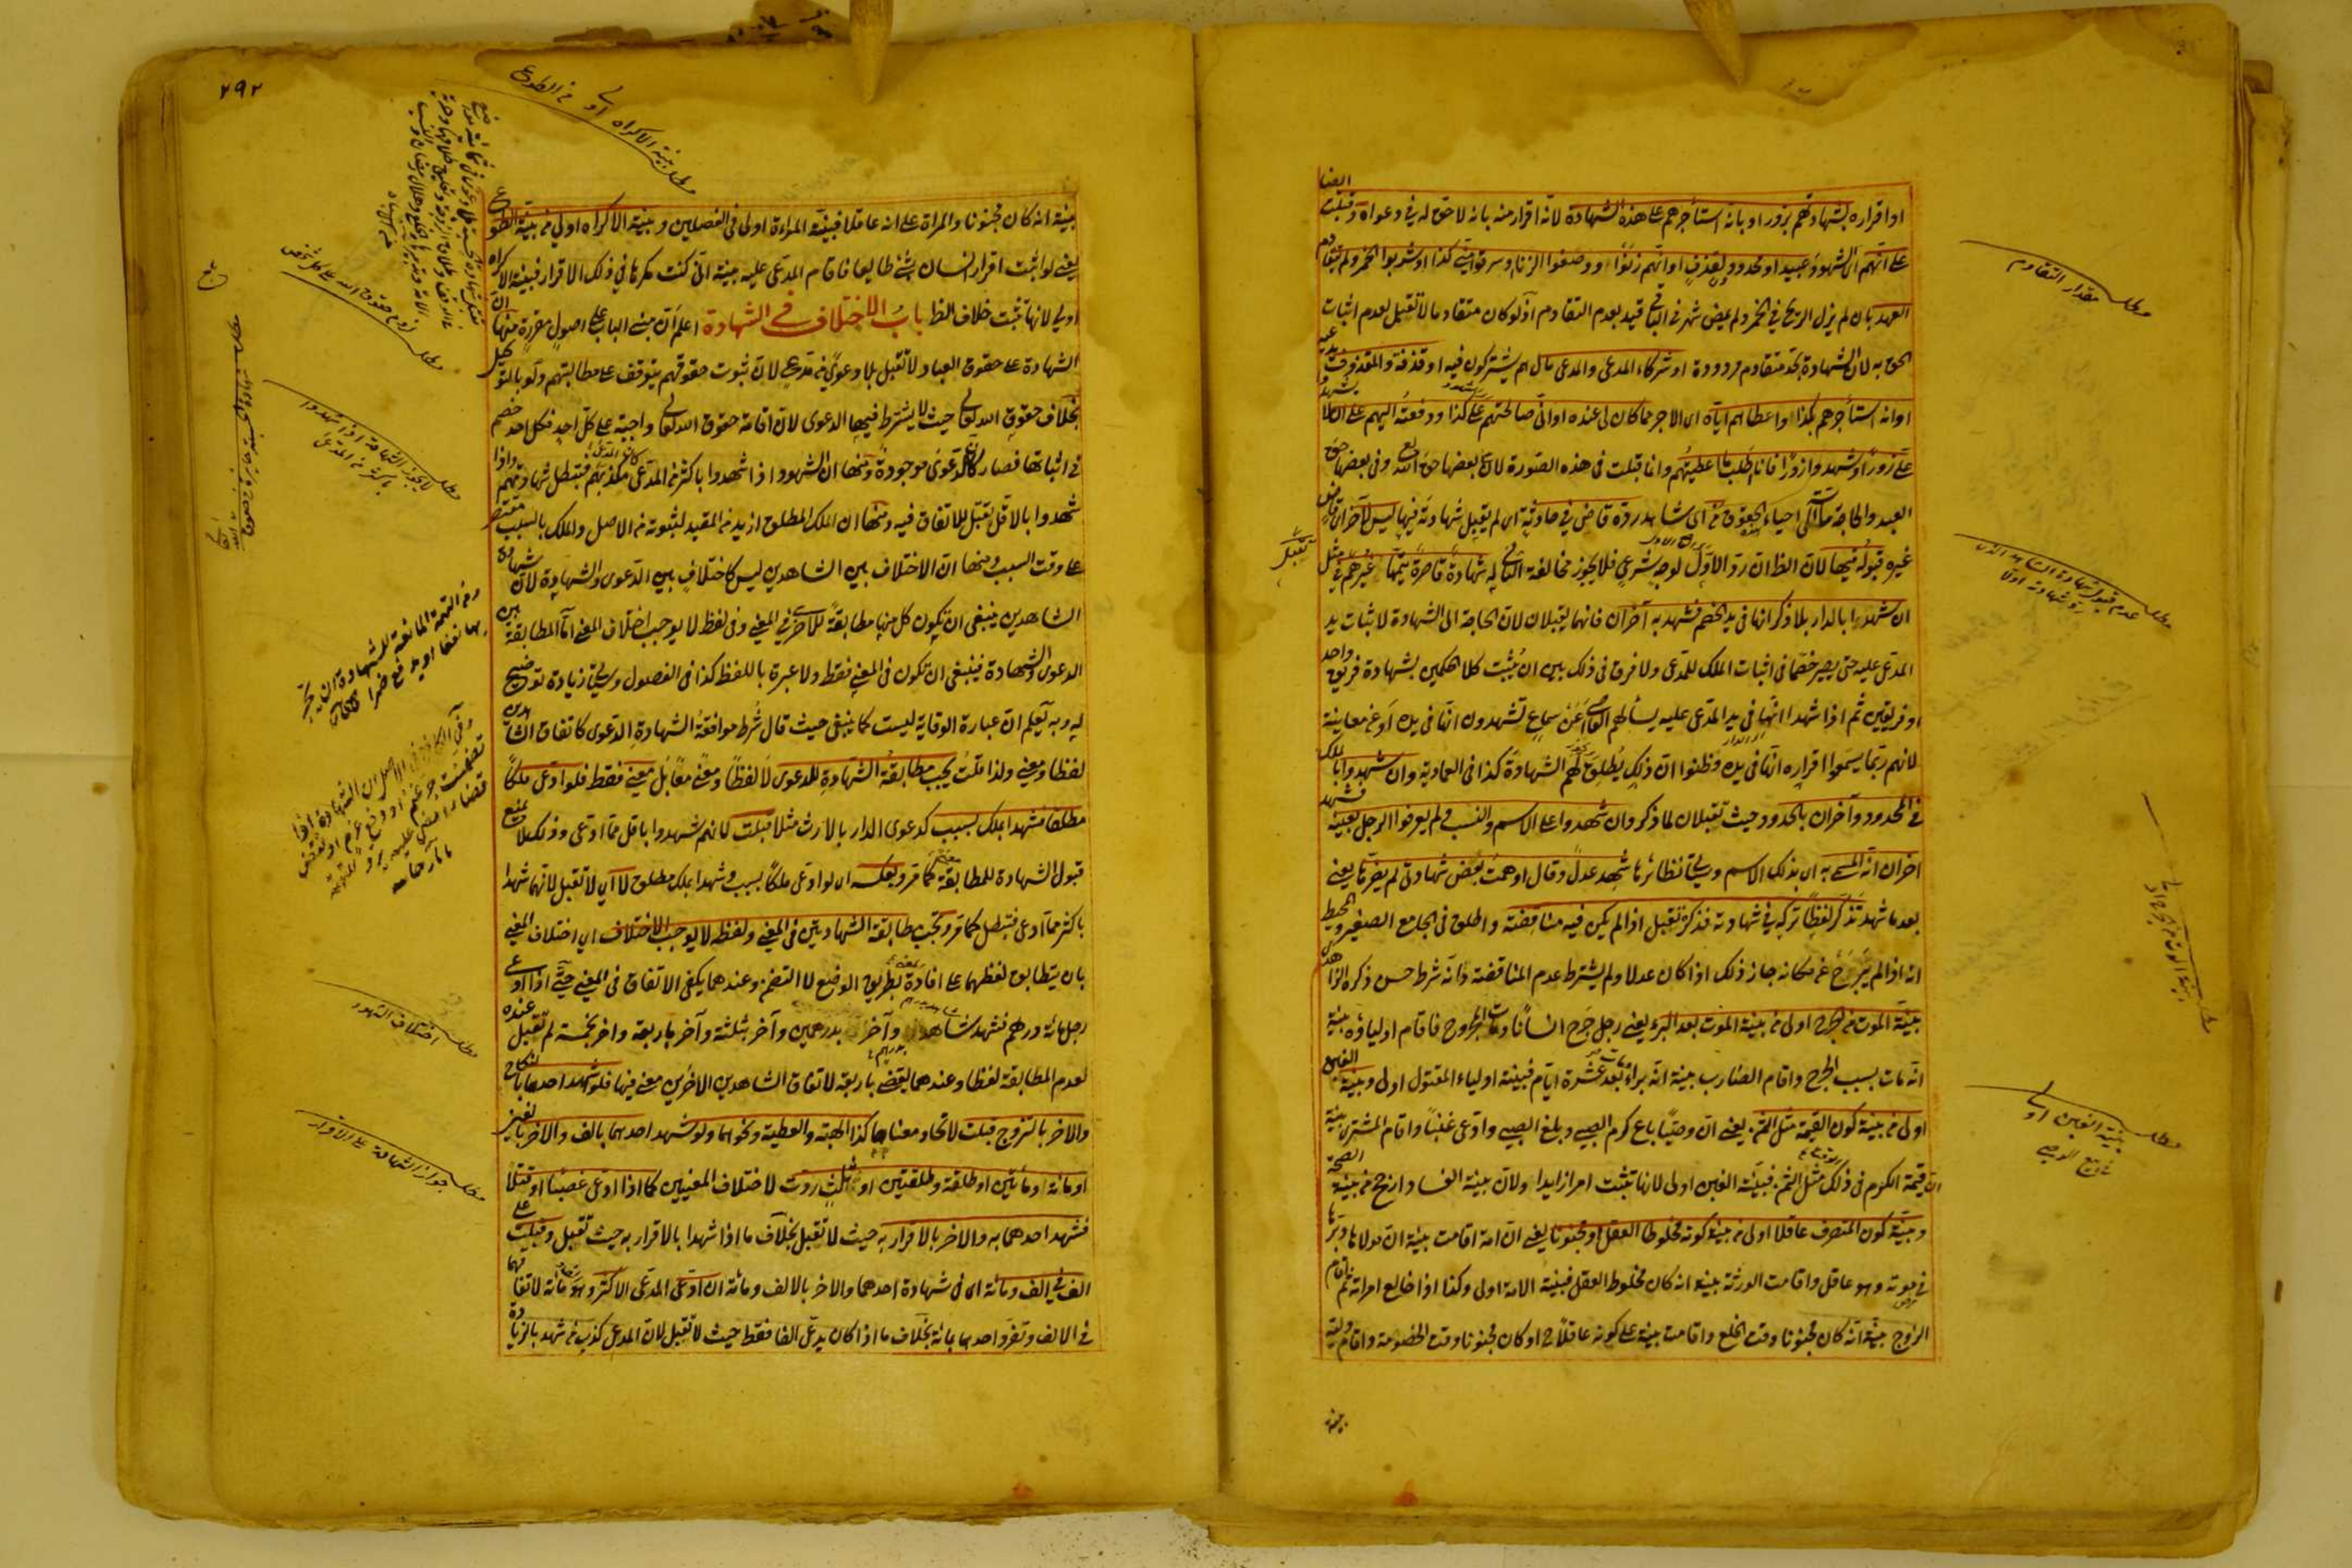 او اقراره بشهادتهم بزور او بانه استأجرهم على هذه الشهادة لانه اقرار منه بانه لا حق له في دعواه وقبلت
على انهم اي الشهود عبيد او محدودون بقذف او انهم زنوا ووصفوا الزنا او سرقوا مني كذا او شربوا الخمر ولم يتقادم
العهد بان لم يزل الريح في الخمر ولم يمض شهر في الباقي قيد بعدم التقادم اذ لو كان متقادما لا تقبل لعدم اثبات
الحق به لان الشهادة بحد متقادم مردودة او شركاء المدعى والمدعى مال اهم يشتركون فيه او قذفة والمقذوف
او انه استأجرهم بكذا واعطاهم اياه اي الاجر مما كان لي عنده او اني صالحتهم على كذا ودفعته اليهم على ان لا
على زورا وشهدوا زورا فانا اطلب ما اعطيتهم وانما قبلت في هذه الصورة لان في بعضها حق الله تع وفي بعضها حق
العبد والحاجة ماسة الى احياء الحقوق اي شاهد رده قاض في حادثة اي لم يقبل شهادته فيها ليس لآخر اي قاض
غيره قبوله فيها لان الظ ان رد الاول لوجه شرعي فلا يجوز مخالفة الثاني له شهادة قاصرة يتمها غيرهم تقبل مثل
ان شهدوا بالدار بلا ذكر انها في يد الخصم فشهد به آخران فانهما يقبلان لان الحاجة الى الشهادة لاثبات يد
المدعى عليه حتى يصير خصما في اثبات الملك للمدعى ولا فرق في ذلك بين ان يثبت كلا الحكمين بشهادة فريق واحد
او فريقين ثم اذا شهدا انها في يد المدعى عليه يسألهم القاضي أعن سماع تشهدون انها في يده او عن معاينة
لانهم ربما يسمعوا اقراره انها في يده وظنوا ان ذلك يطلق لهم الشهادة كذا في العمادية وان شهدوا بالملك
في المحدود وآخران بالحدود حيث تقبلان لما ذكر وان شهدوا على الاسم والنسب ولم يعرفوا الرجل بعينه فشهد
اخران انه المسمى به اي بذلك الاسم وسيأتي نظائرها شهد عدل وقال اوهمت بعض شهادتي لم يضرها يعني
بعد ما شهد تذكر لفظا تركه في شهادته فذكره تقبل اذا لم يكن فيه مناقضة واطلق في الجامع الصغير والمحيط
انه اذا لم يبرح عن مكانه جاز ذلك اذا كان عدلا ولم يشترط عدم المناقضة وانه شرط حسن ذكره الزاهدي
بينة الموت من الجرح اولى من بينة الموت بعد البرء يعني رجل جرح انسانا ومات المجروح فاقام اولياؤه بينة
انه مات بسبب الجرح واقام الضارب بينة انه برأ ومات بعد عشرة ايام فبينة اولياء المقتول اولى وبينة الغبن
اولى من بينة كون القيمة مثل الثمن يعني ان وصيا باع كرم الصبي وبلغ الصبي وادعى غبنا واقام المشتري بينة
ان قيمة الكرم في ذلك الوقت مثل الثمن فبينة الغبن اولى لانها تثبت امرا زايدا ولان بينة الفساد ارجح من بينة الصحة
وبينة كون المتصرف عاقلا اولى من بينة كونه مخلوط العقل او مجنونا يعني ان امة اقامت بينة ان مولاها دبرها
في موته وهو عاقل واقامت الورثة بينة انه كان مخلوط العقل فبينة الامة اولى وكذا اذا خالع امراته ثم اقام
الزوج بينة انه كان مجنونا وقت الخلع واقامت بينة على كونه عاقلا ح او كان مجنونا وقت الخصومة واقام وليه
بينة
مطلب مقدار التقادم
مطلب عدم قبول شهادة الشاهد الذي رد شهادته اولا
مطلب بينة الغبن اولى في بيع الوصي
٢٩٢
مطلب بينة الاكراه اولى من الطوع
بينة انه كان مجنونا والمراة على انه عاقلا فبينة المراءة اولى في الفصلين وبينة الاكراه اولى من بينة الطوع
يعني لو اثبت اقرار انسان بشئ طايعا فاقام المدعى عليه بينة اني كنت مكرها في ذلك الاقرار فبينة الاكراه
اولى لانها تثبت خلاف الظ باب الاختلاف في الشهادة اعلم ان مبنى الباب على اصول مقررة منها ان
الشهادة على حقوق العباد لا تقبل بلا دعوى من مدع لان ثبوت حقوقهم يتوقف على مطالبتهم ولو بالتوكيل
بخلاف حقوق الله تعالى حيث لا يشترط فيها الدعوى لان اقامة حقوق الله تعالى واجبة على كل احد فكل احد خصم
في اثباتها فصار كان الدعوى موجودة ومنها ان الشهود اذا شهدوا باكثر من المدعى كان المدعى مكذبهم فتبطل شهادتهم واذا
شهدوا بالاقل تقبل للاتفاق فيه ومنها ان الملك المطلق ازيد من المقيد لثبوته من الاصل والملك بالسبب مقتصر
على وقت السبب ومنها ان الاختلاف بين الشاهدين ليس كاختلاف بين الدعوى والشهادة لان شهادة
الشاهدين ينبغي ان تكون كل منهما مطابقة للاخرى في المعنى وفي لفظ لا يوجب اختلاف المعنى اما المطابقة بين
الدعوى والشهادة فينبغي ان تكون في المعنى فقط ولا عبرة باللفظ كذا في الفصول وسيجئ زيادة توضيح
له وبه يعلم ان عبارة الوقاية ليست كما ينبغي حيث قال شرط موافقة الشهادة الدعوى كاتفاق الشاهدين
لفظا ومعنى ولذا قلت يجب مطابقة الشهادة للدعوى لا لفظا ومعنى معا بل معنى فقط فلو ادعى ملكا
مطلقا فشهدا بملك بسبب كدعوى الدار بالارث مثلا قبلت لانهم شهدوا باقل مما ادعى وذلك لا يمنع
قبول الشهادة للمطابقة معنى كما مر وبعكسه اي لو ادعى ملكا بسبب وشهدا بملك مطلق لا اي لا تقبل لانهما شهدا
باكثر مما ادعى فتبطل كما مر وتجب مطابقة الشهادتين في المعنى ولفظ لا يوجب الاختلاف اي اختلاف المعنى
بان يتطابق لفظهما على افادة المعنى بطريق الوضع لا التضمن وعندهما يكفي الاتفاق في المعنى حتى اذا ادعى
رجل مائة درهم فشهد شاهد بدرهم وآخر بدرهمين وآخر بثلثة وآخر باربعة واخر بخمسة لم تقبل عنده
لعدم المطابقة لفظا وعندهما يقضى باربعة لاتفاق الشاهدين الاخرين معنى فيها فلو شهد احدهما بالنكاح
والاخر بالتزوج قبلت لاتحاد معناهما كذا الهبة والعطية ونحوهما ولو شهد احدهما بالف والاخر بالفين
او مائة او مائتين او طلقة وطلقتين او ثلث ردت لاختلاف المعنيين كما اذا ادعى غصبا او قتلا
فشهد احدهما به والاخر بالاقرار به حيث لا تقبل بخلاف ما اذا شهدا بالاقرار به حيث تقبل وقبلت على
الف في الف ومائة اي في شهادة احدهما والاخر بالالف ومائة ان ادعى المدعى الاكثر وهو الف ومائة لاتفاقهما
في الالف وتفرد احدهما بمائة بخلاف ما اذا كان يدعى الفا فقط حيث لا تقبل لان المدعى كذب من شهد بالزيادة
مطلب لا يجوز الشهادة اذا شهدوا باكثر من المدعى
مطلب اختلاف الشهود
مطلب جواز الشهادة على الاقرار